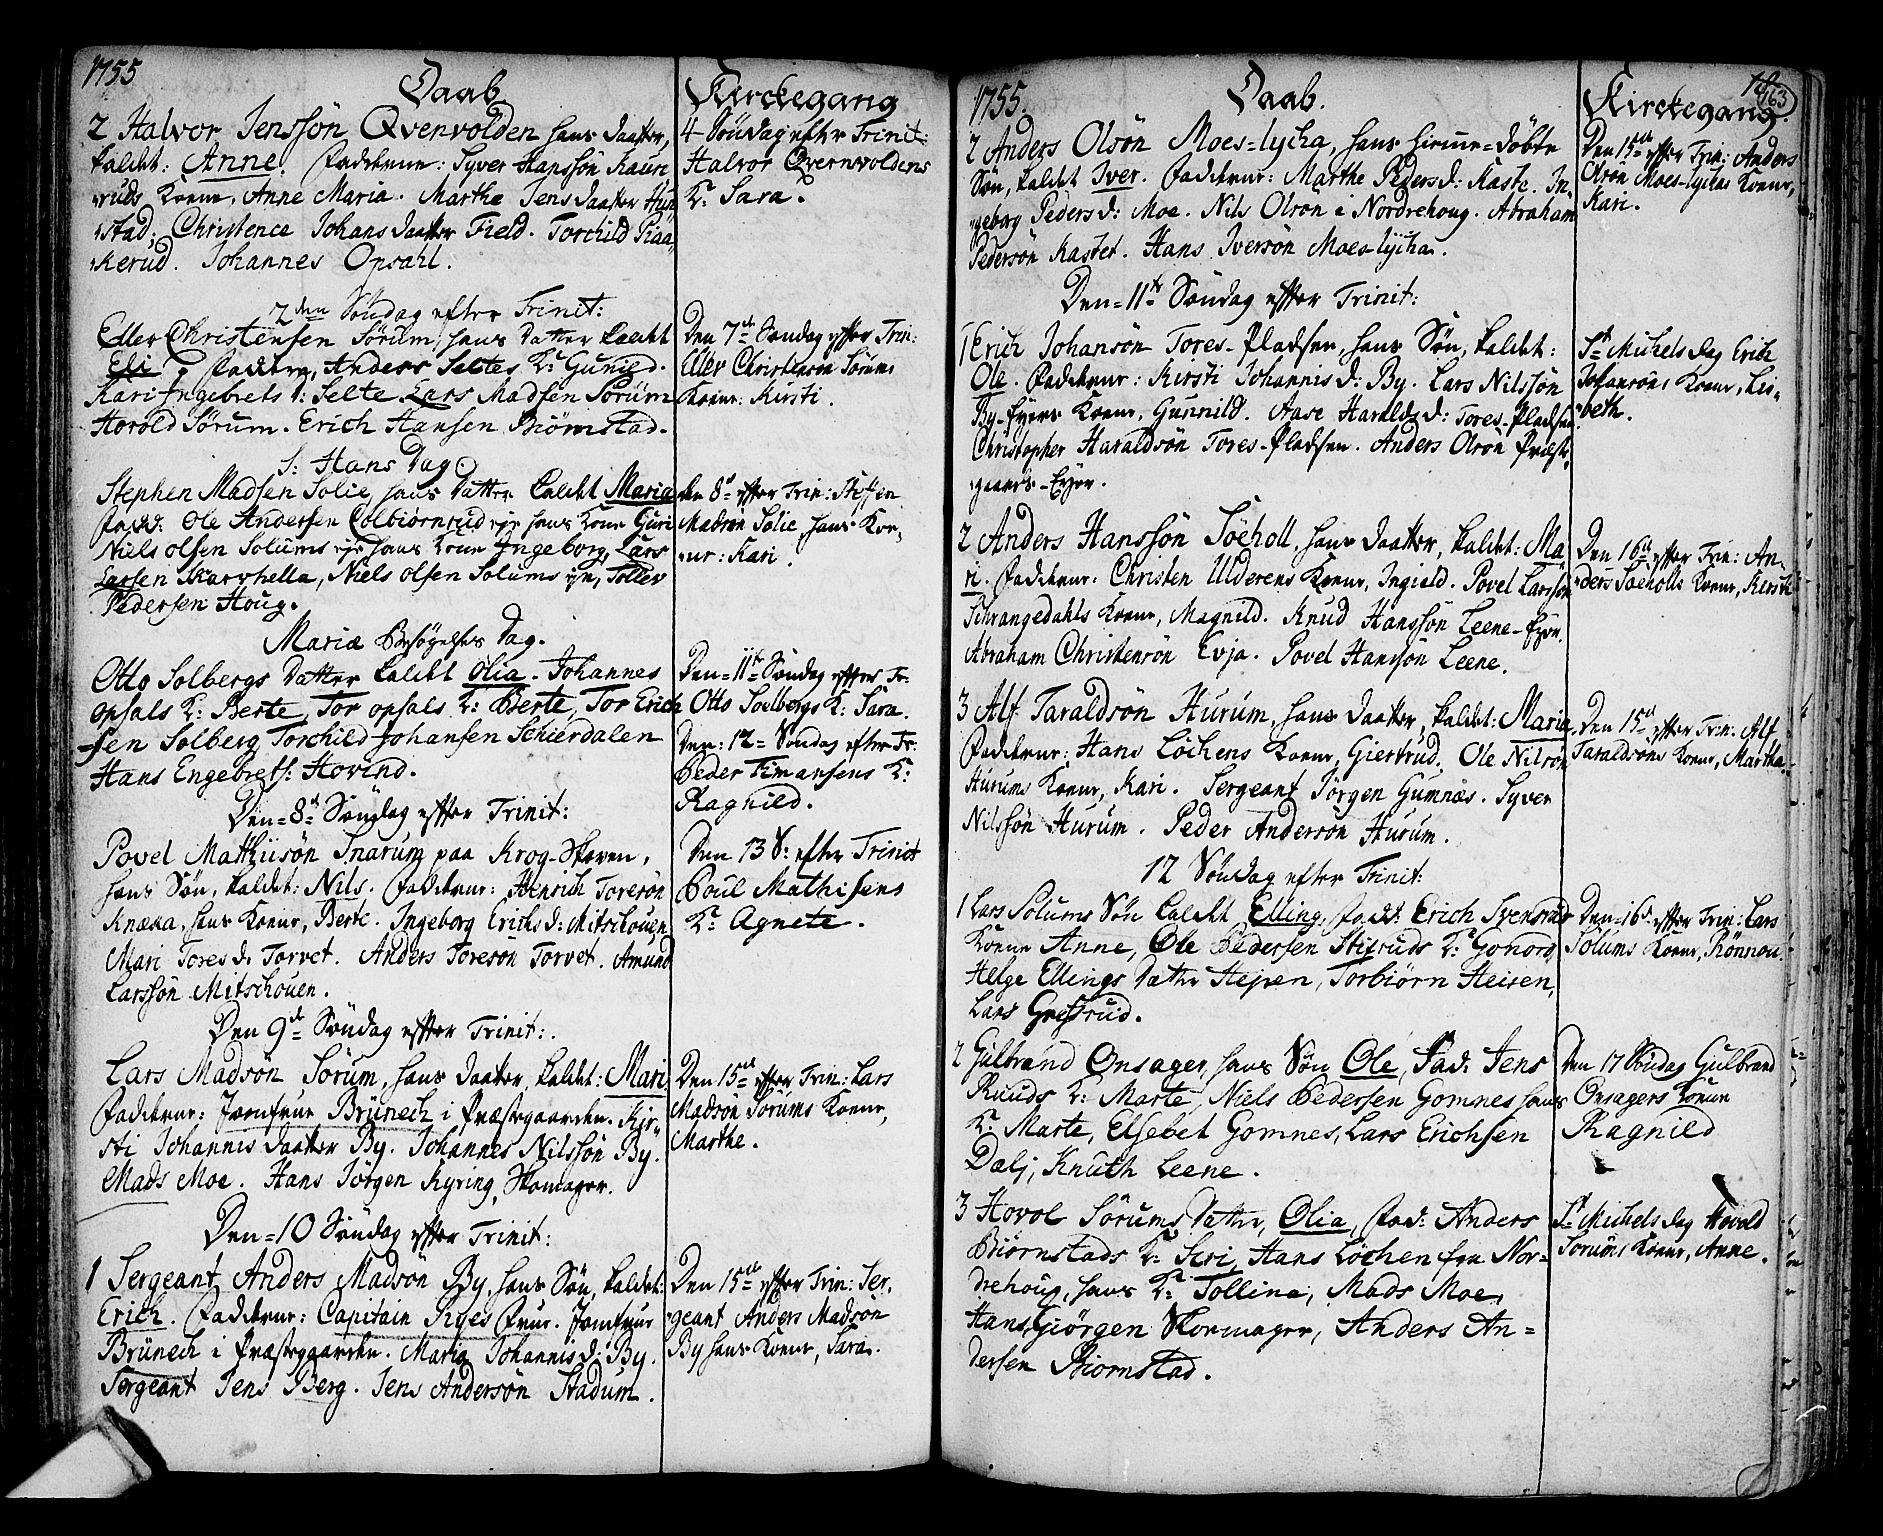 1755
Daab
2 Halvor Jenssön Qvenvolden hans Daatter,
kaldet: Anne. Fadderne: Syver Hanssön Raure
ruds Kone, Anne Maria. Marthe Jens Daatter Hun
stad, Christence Johans Daatter Field. Torchild Plaa,
kerud. Johannes Opsahl.
2den Söndag efter Trinit:
Eller Christensen Sörum, hans datter kaldet
Eli, Faddere, Anders Seltes K: Gunild.
Kari Ingebrets d: Selte Lars Madsen Sörum
Horold Sörum. Erich Hansen Biörnstad.
S: Hans Dag
Stephen Madsen Solie, hans datter kaldet Maria
Fadd: Ole Andersen Colbiörnrud eje hans Kone Guri
Niels olsen Solums eje hans Kone Ingeborg, Lars
Larsen Skarvhella, Niels olsen Solums eje, Toller
Pedersen Houg.
Mariæ Besögelses Dag.
Otto Solbergs datter kaldet Olia. Johannes
opsals K: Berte, Tor opsals K: Berte, Tor Erich
sen Solberg Torchild Johansen Schierdalen
Hans Engebrets: Hovind.
Den 8de Söndag effter Trinit:
Povel Mathiisön Snarum paa Krog-Skoven,
hans Sön, kaldet: Nils. Fadderne: Henrich Toresön
Knæka, hans Kone, Berte. Ingeborg Erichs d: Mitschouen,
Mari Tores d: Torvet. Anders Toresön Torvet. Amund
Larssön Mitschouen.
Den 9de Söndag effter Trinit:
Lars Madsön Sörum, hans Daatter, kaldet: Mari
Fadderne: Jomfrue Brünech i Præstegaarden. Kir-
sti Johannis Daatter By. Johannes Nilssön By.
Mads Moe. Hans Jörgen Kyring, Skomager.
Den 10 Söndag effter Trinit:
1 Sergeant Anders Madsön By, hans Sön, kaldet:
Erich. Fadderne: Capitain Ryes Frue. Jomfrue
Brünech i Præstegaarden. Maria Johannis d: By.
Sergeant Jens Berg. Jens Andersön Stadum.
Kirckegang
4 Söndag efter Trinit:
Halvor Qvernvoldens
K: Sara.
Den 7de Söndag effter Trin:
Eller Christensen Sörums
Kone: Kirsti.
den 8de effter Trin: Steffen
Madsön Solie hans Ko-
ne: Kari.
Den 11te Söndag effter Tr:
Otto Soelbergs K: Sara.
Den: 12 Söndag efter Tr:
Peder Timansens K:
Ragnild.
Den 13 S: efter Trinit
Poul Mathisens
K: Agnete.
Den 15de effter Trin: Lars
Madsön Sörums Kone,
Marthe.
Den 15de effter Trin: Ser-
geant Anders Madsön
By hans Kone, Sara.
1755.
Daab.
2 Anders Olsön Moes-lycka, hans hiemme-döbte
Sön, kaldet Iver. Fadderne: Marthe Peders d: Kaste. In-
geborg Peders d: Moe. Nils Olsön i Nordrehoug. Abraham
Pedersön Kastet. Hans Iversön Moes-lycka.
Den 11te Söndag effter Trinit:
1 Erich Johansön Tores-Pladsen, hans Sön, kaldet:
Ole. Fadderne: Kirsti Johannis d: By. Lars Nilssön
By-Eyers Kone, Gunnild. Aase Haralds d: Tores-Pladsen
Christopher Haraldsön Tores-Pladsen. Anders Olsön Præste,
gaards-Eyer.
2 Anders Hanssön Söeholl, hans Daatter, kaldet: Ma,
ri. Fadderne: Christen Ulderens Kone, Ingield. Povel Larssön
Schrangedahls Kone, Magnild. Knud Hanssön Leene-Eyer.
Abraham Christensön Evja. Povel Hanssön Leene.
3 Alf Taraldsön Hurum, hans Daatter, kaldet: Maria
Fadderne: Hans Löchens Kone, Giertrud. Ole Nilsön
Hurums Kone, Kari. Sergeant Jörgen Gumnæs. Syver
Nilssön Hurum. Peder Andersön Hurum.
12 Söndag efter Trinit:
1 Lars Solums Sön kaldet Elling, Fadd: Erich Svensruds
Kone Anne, Ole Pedersen Stixruds K: Gonord
Helge Ellings datter Hejen, Torbiörn Heisen,
Lars Gresrud.
2 Gulbrand Onsager, hans Sön Ole, Fad: Jens
Ruuds K: Marte, Niels Pedersen Gomnes hans
K: Marte, Elsebet Gomnes, Lars Erichsen
Dalj, Knuth Leene.
3 Hovol Sörums datter, Olia, Fad: Anders
Biörnstads K: Siri, Hans Löchen fra Nor-
drehoug, hans K: Tollina, Mads Moe,
Hans Giörgen Skomager, Anders An-
dersen Biornstad.
163
Kirckegang.
Den 15de effter Trin: Anders
Olsön Moes-lyckas Kone,
Kari.
St Michels dag Erich
Johansöns Kone, Lis-
beth.
Den 16de effter Trin: An-
ders Söeholls Kone, Kirsti
Den 15de effter Trin: Alf
Taraldsöns Kone, Martha.
Den 16de effter Trin: Lars
Solums Kone, Rönnou.
Den 17 Söndag Gulbrand
Onsagers Kone
Ragnild
St Michels dag Hovold
Sorums Kone, Anne.